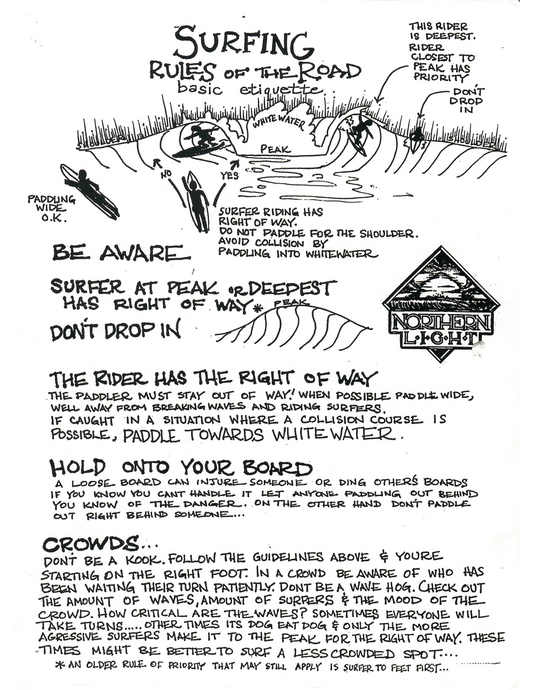 SURFING
RULES OF THE ROAD
basic etiquette
THIS RIDER
IS DEEPEST.
RIDER
CLOSEST TO
PEAK HAS
PRIORITY
DON'T
DROP
IN
WHITEWATER
SHOULDER
PEAK
NO
YES
PADDLING
WIDE
O.K.
SURFER RIDING HAS
RIGHT OF WAY.
DO NOT PADDLE FOR THE SHOULDER.
AVOID COLLISION BY
PADDLING INTO WHITEWATER
BE AWARE
SURFER AT PEAK OR DEEPEST
HAS RIGHT OF WAY *
PEAK
DON'T DROP IN
NORTHERN
L·I·G·H·T
THE RIDER HAS THE RIGHT OF WAY
THE PADDLER MUST STAY OUT OF WAY! WHEN POSSIBLE PADDLE WIDE,
WELL AWAY FROM BREAKING WAVES AND RIDING SURFERS.
IF CAUGHT IN A SITUATION WHERE A COLLISION COURSE IS
POSSIBLE, PADDLE TOWARDS WHITEWATER.
HOLD ONTO YOUR BOARD
A LOOSE BOARD CAN INJURE SOMEONE OR DING OTHER'S BOARDS
IF YOU KNOW YOU CANT HANDLE IT LET ANYONE PADDLING OUT BEHIND
YOU KNOW OF THE DANGER. ON THE OTHER HAND DON'T PADDLE
OUT RIGHT BEHIND SOMEONE...
CROWDS...
DON'T BE A KOOK. FOLLOW THE GUIDELINES ABOVE & YOURE
STARTING ON THE RIGHT FOOT. IN A CROWD BE AWARE OF WHO HAS
BEEN WAITING THEIR TURN PATIENTLY. DONT BE A WAVE HOG. CHECK OUT
THE AMOUNT OF WAVES, AMOUNT OF SURFERS & THE MOOD OF THE
CROWD. HOW CRITICAL ARE THE WAVES? SOMETIMES EVERYONE WILL
TAKE TURNS..... OTHER TIMES ITS DOG EAT DOG & ONLY THE MORE
AGRESSIVE SURFERS MAKE IT TO THE PEAK FOR THE RIGHT OF WAY. THESE
TIMES MIGHT BE BETTER TO SURF A LESS CROWDED SPOT....
* AN OLDER RULE OF PRIORITY THAT MAY STILL APPLY IS SURFER TO FEET FIRST...